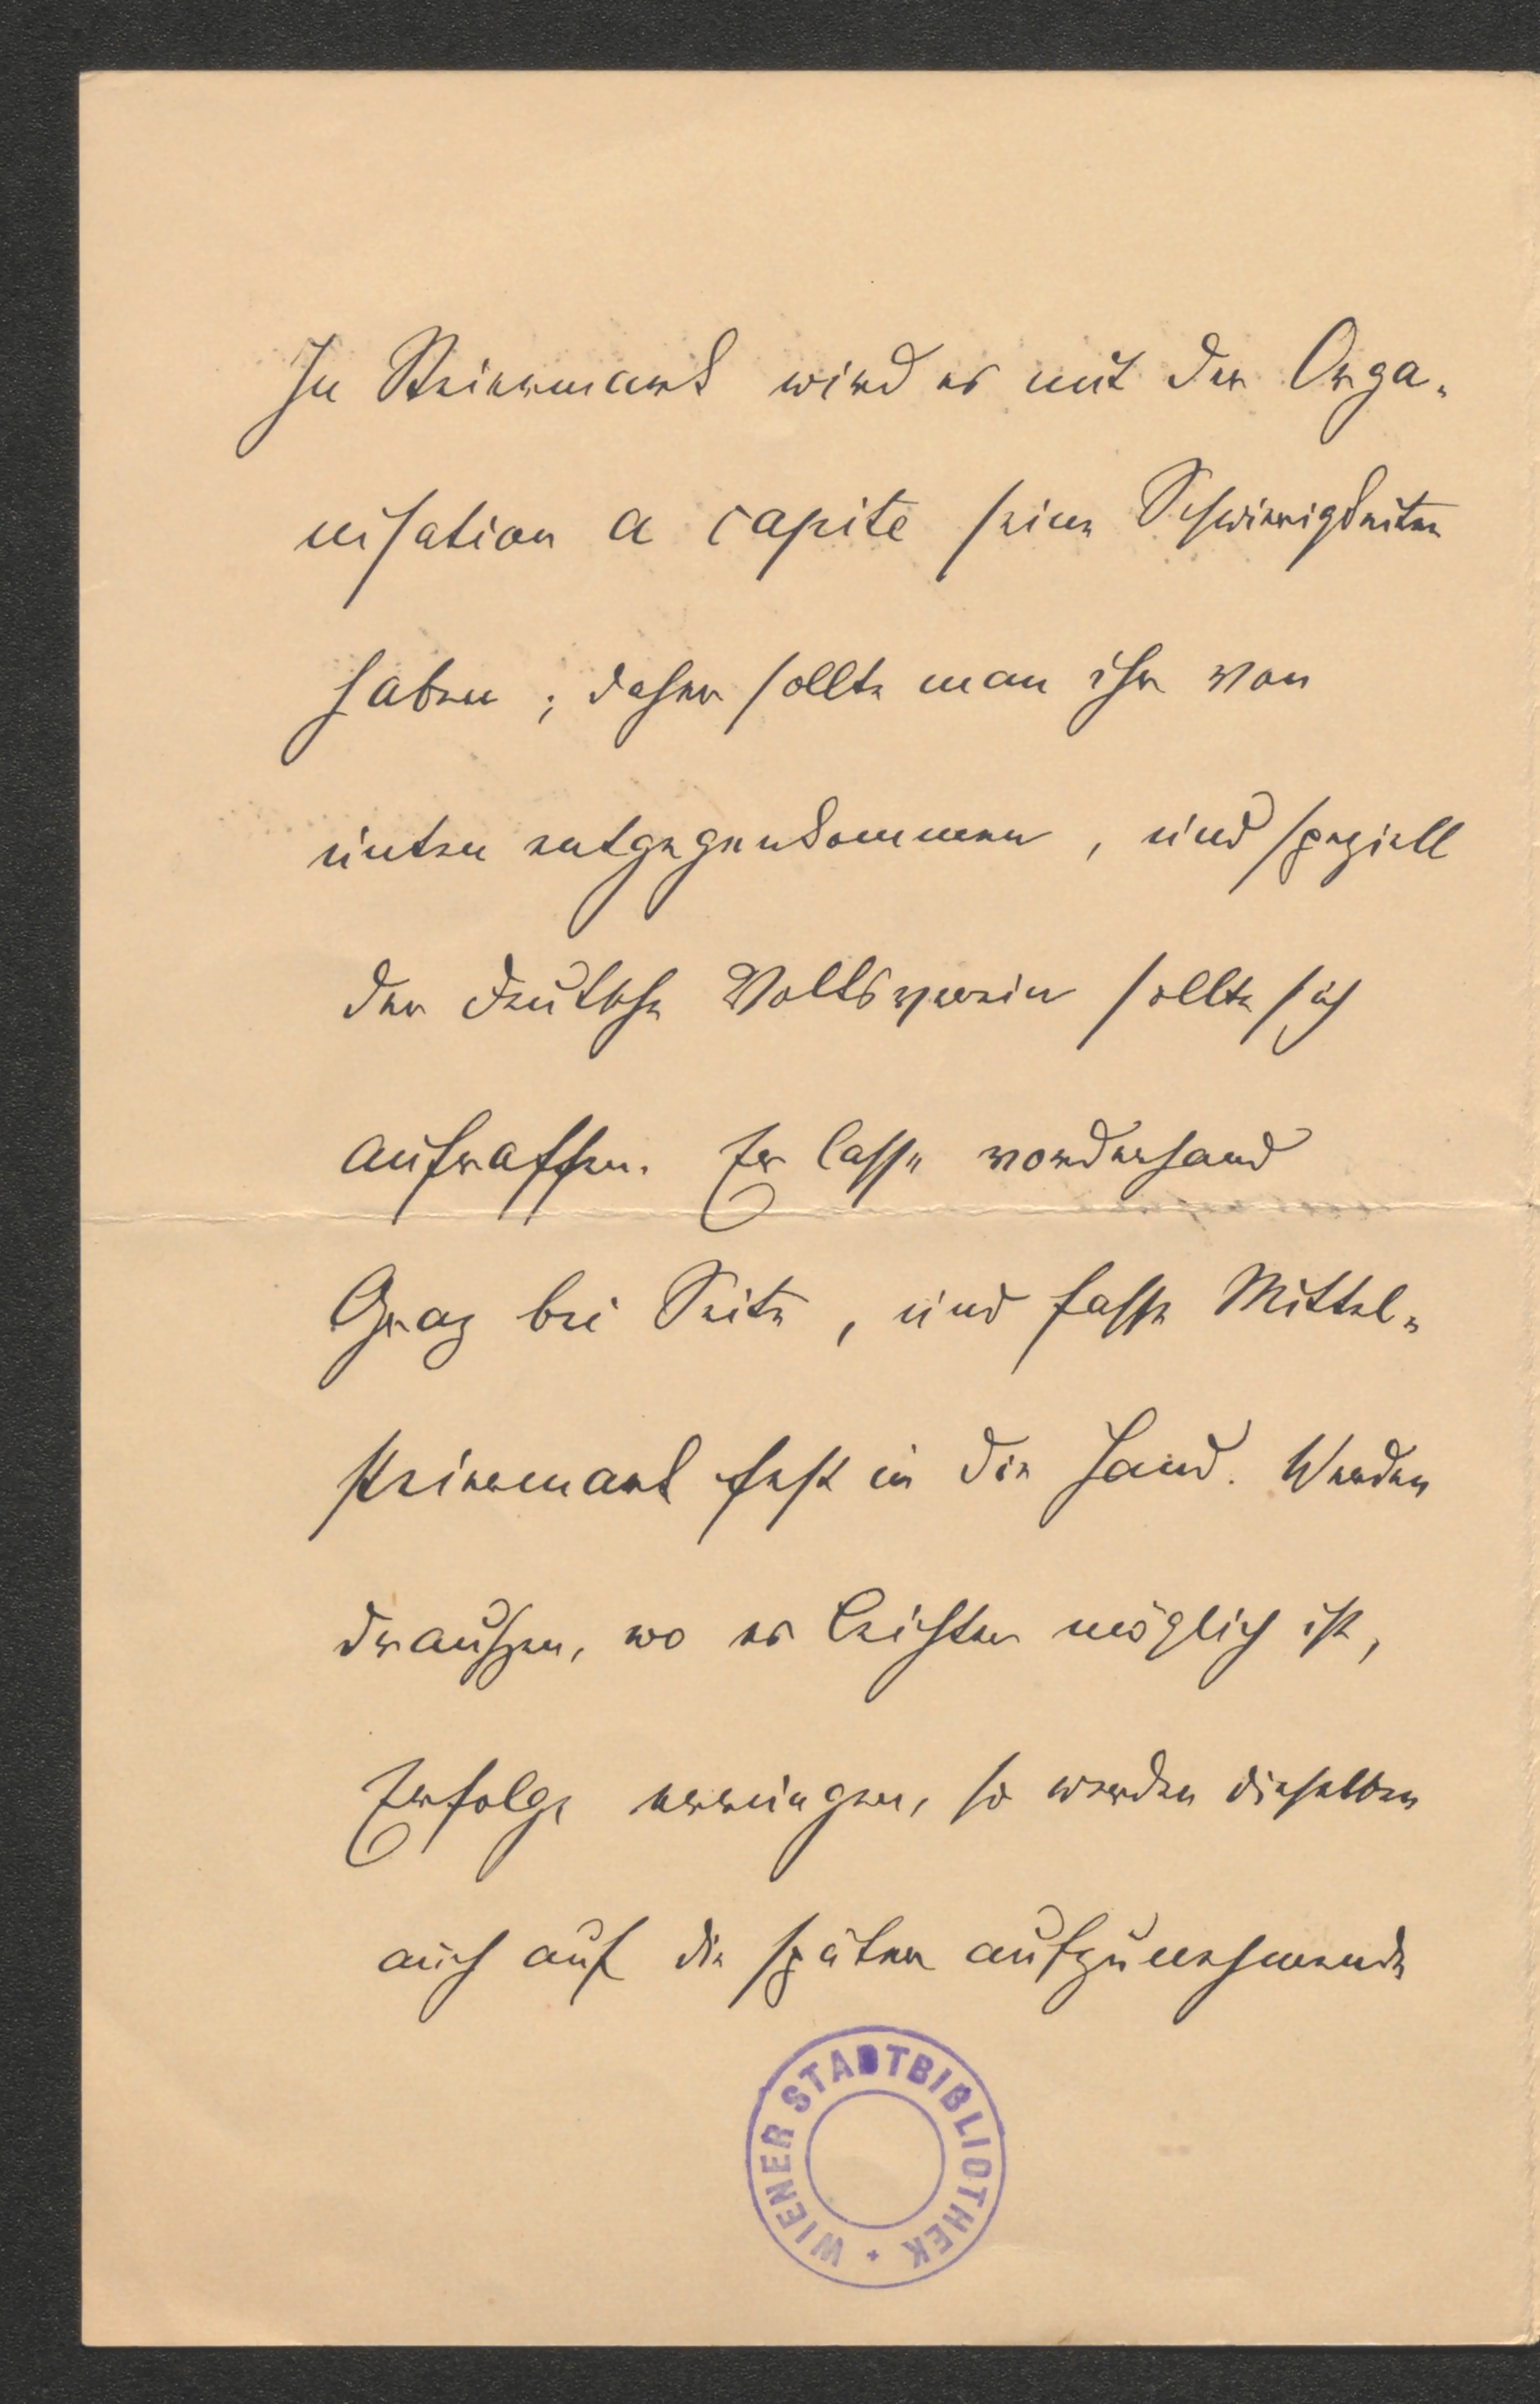 In Steiermark wird es mit der Orga-
nisation a capite seine Schwierigkeiten
haben; daher sollte man ihr von
unten entgegenkommen, und speziell
der deutsche Volksverein sollte sich
aufraffen. Er lasse vorderhand
Graz bei Seite, und fasse Mittel-
steiermark fest in die Hand. Werden
draußen, wo es leichter möglich ist,
Erfolge errungen, so werden dieselben
auch auf die später aufzunehmende
WIENER STADTBIBLIOTHEK